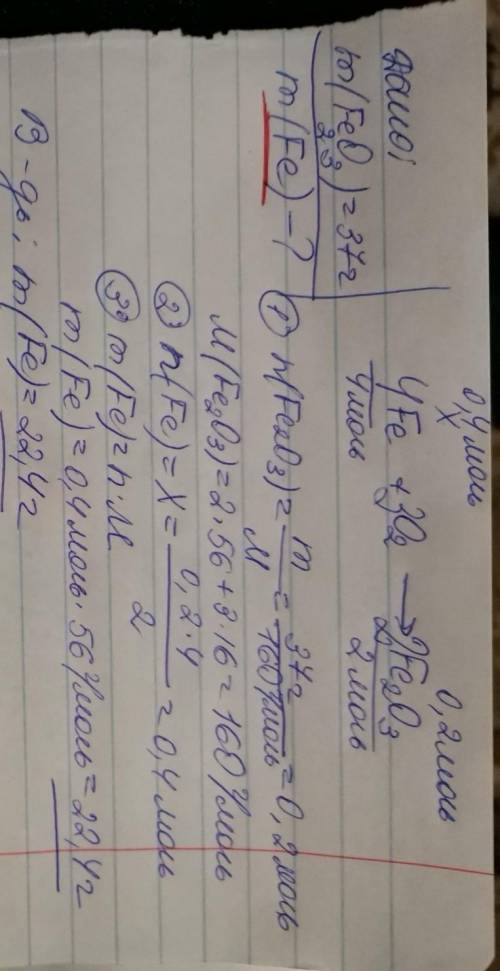 Дано:
m(Fe₂O₃)=37г
m(Fe)-?
0,4моль 0,2моль
X
4Fe + 3O₂ → 2Fe₂O₃
4моль 2моль
① n(Fe₂O₃)= m/M = 37г/160г/моль = 0,2моль
M(Fe₂O₃)=2·56+3·16=160г/моль
② n(Fe)=X= 0,2·4/2 =0,4моль
③ m(Fe)=n·M
m(Fe)=0,4моль·56г/моль=22,4г
В-дь: m(Fe)=22,4г